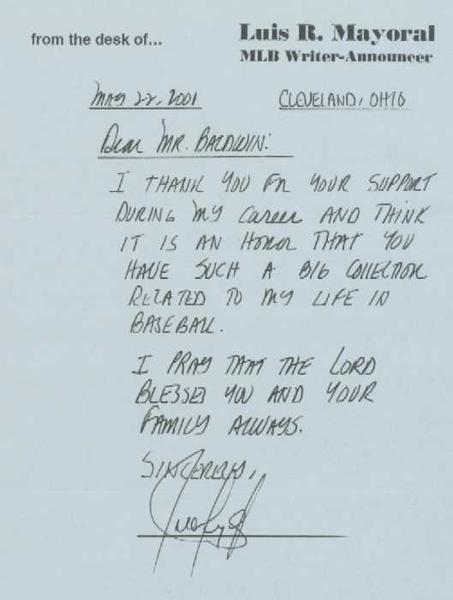 from the desk of...
Luis R. Mayoral
MLB Writer-Announcer
MAY 22, 2001
CLEVELAND, OHIO
Dear MR. BALDWIN:
I THANK YOU FOR YOUR SUPPORT
DURING MY CAREER AND THINK
IT IS AN HONOR THAT YOU
HAVE SUCH A BIG COLLECTION
RELATED TO MY LIFE IN
BASEBALL.
I PRAY THAT THE LORD
BLESSES YOU AND YOUR
FAMILY ALWAYS.
SINCERELY,